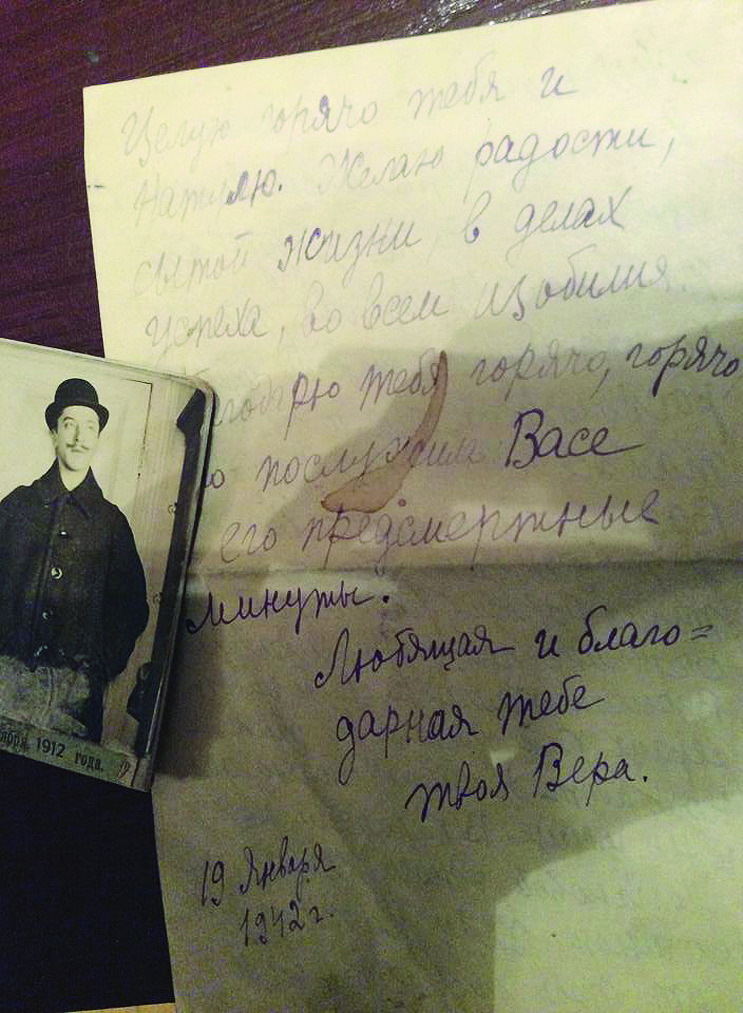 Целую горячо тебя и
Натулю. Желаю радости,
сытой жизни, в делах
успеха, во всем изобилия.
годарю тебя горячо, горячо,
о послужила Васе
его предсмертные
минуты.
Любящая и благо=
дарная тебе
твоя Вера.
19 Января
1942 г.
1912 года.